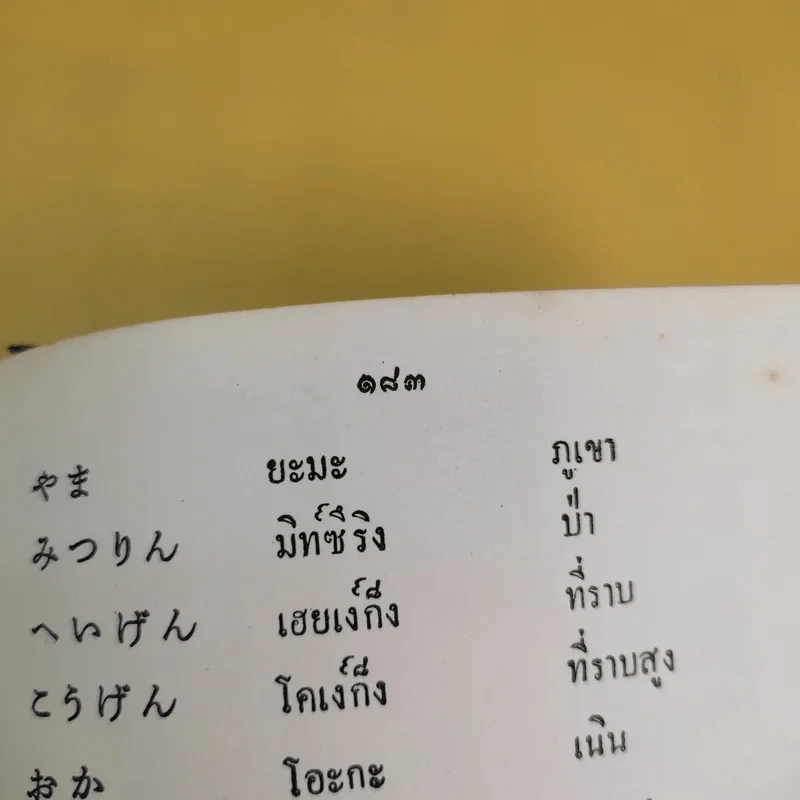 ๑๘๓
やま ยะมะ ภูเขา
みつりん มิท์ซึริง ป่า
へいげん เฮยเง์ก็ง ที่ราบ
こうげん โคเง์ก็ง ที่ราบสูง
おか โอะกะ เนิน